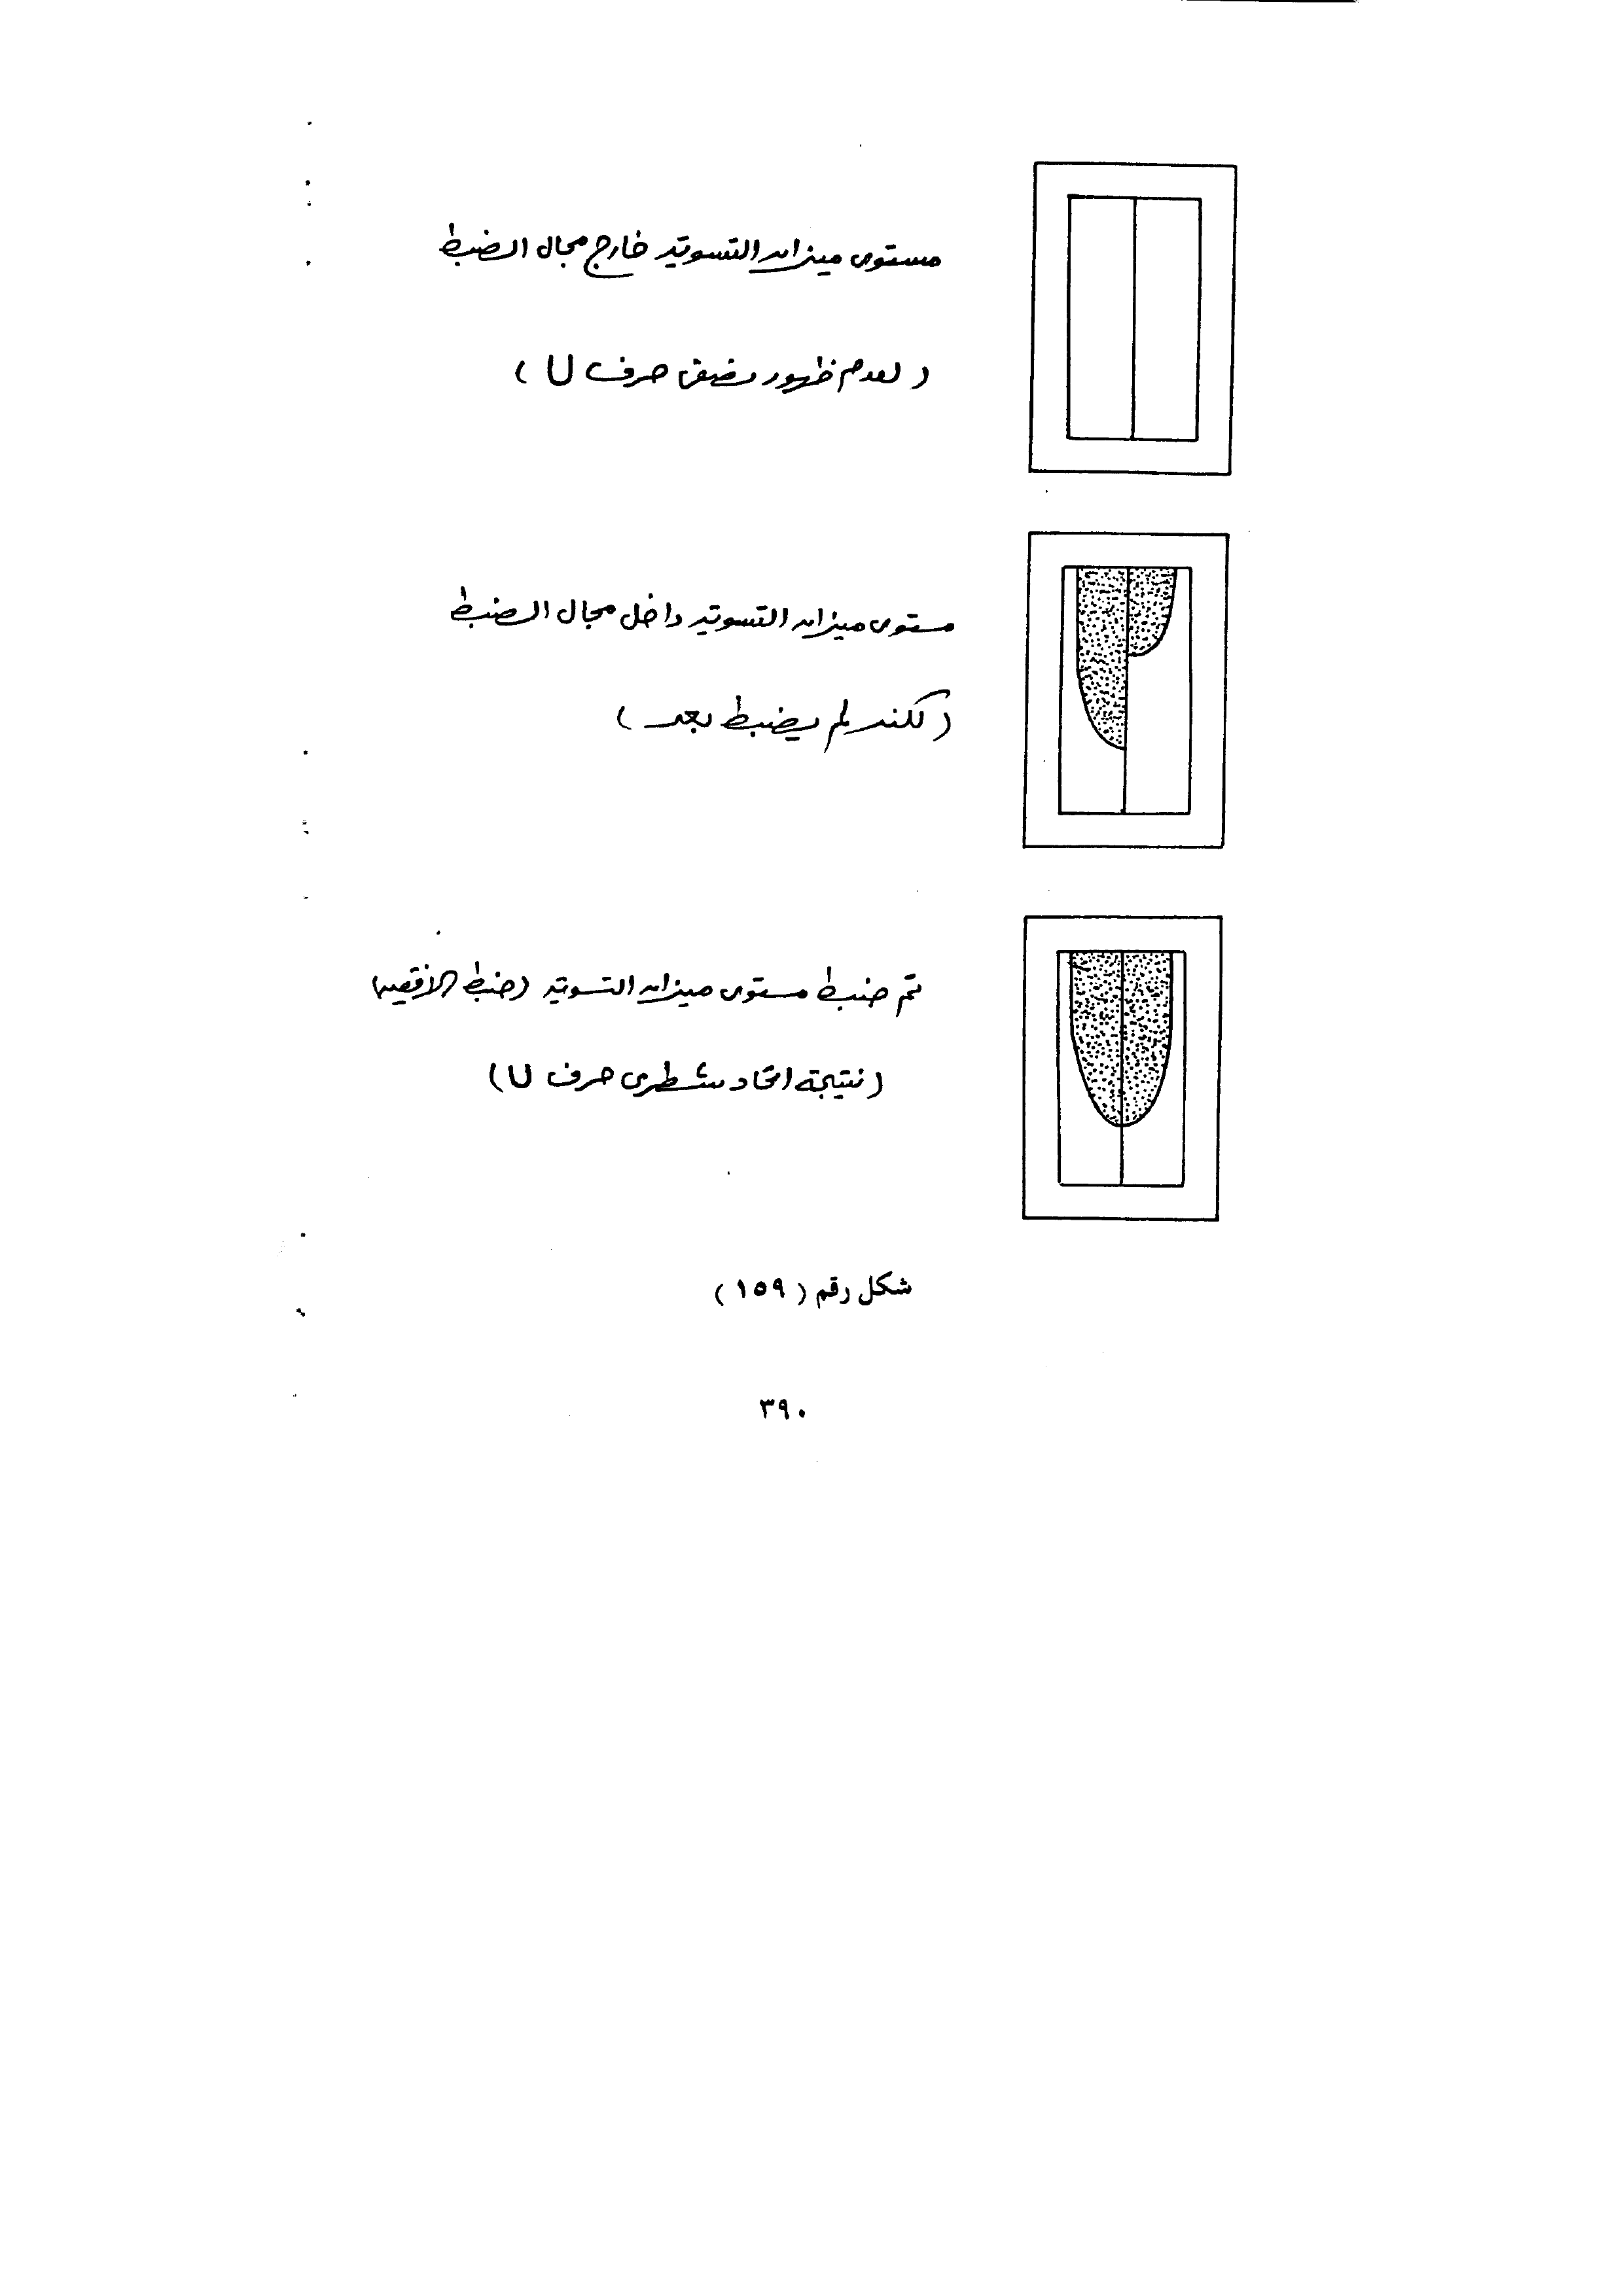 مستوى ميزان التسوية خارج مجال الضبط
( لعدم ظهور نصفى حرف U )
مستوى ميزان التسوية داخل مجال الضبط
( لكنه لم يضبط بعد )
تم ضبط مستوى ميزان التسوية (ضبط الافقية)
( نتيجة اتحاد شطرى حرف U )
شكل رقم ( ١٥٩ )
٣٩٠